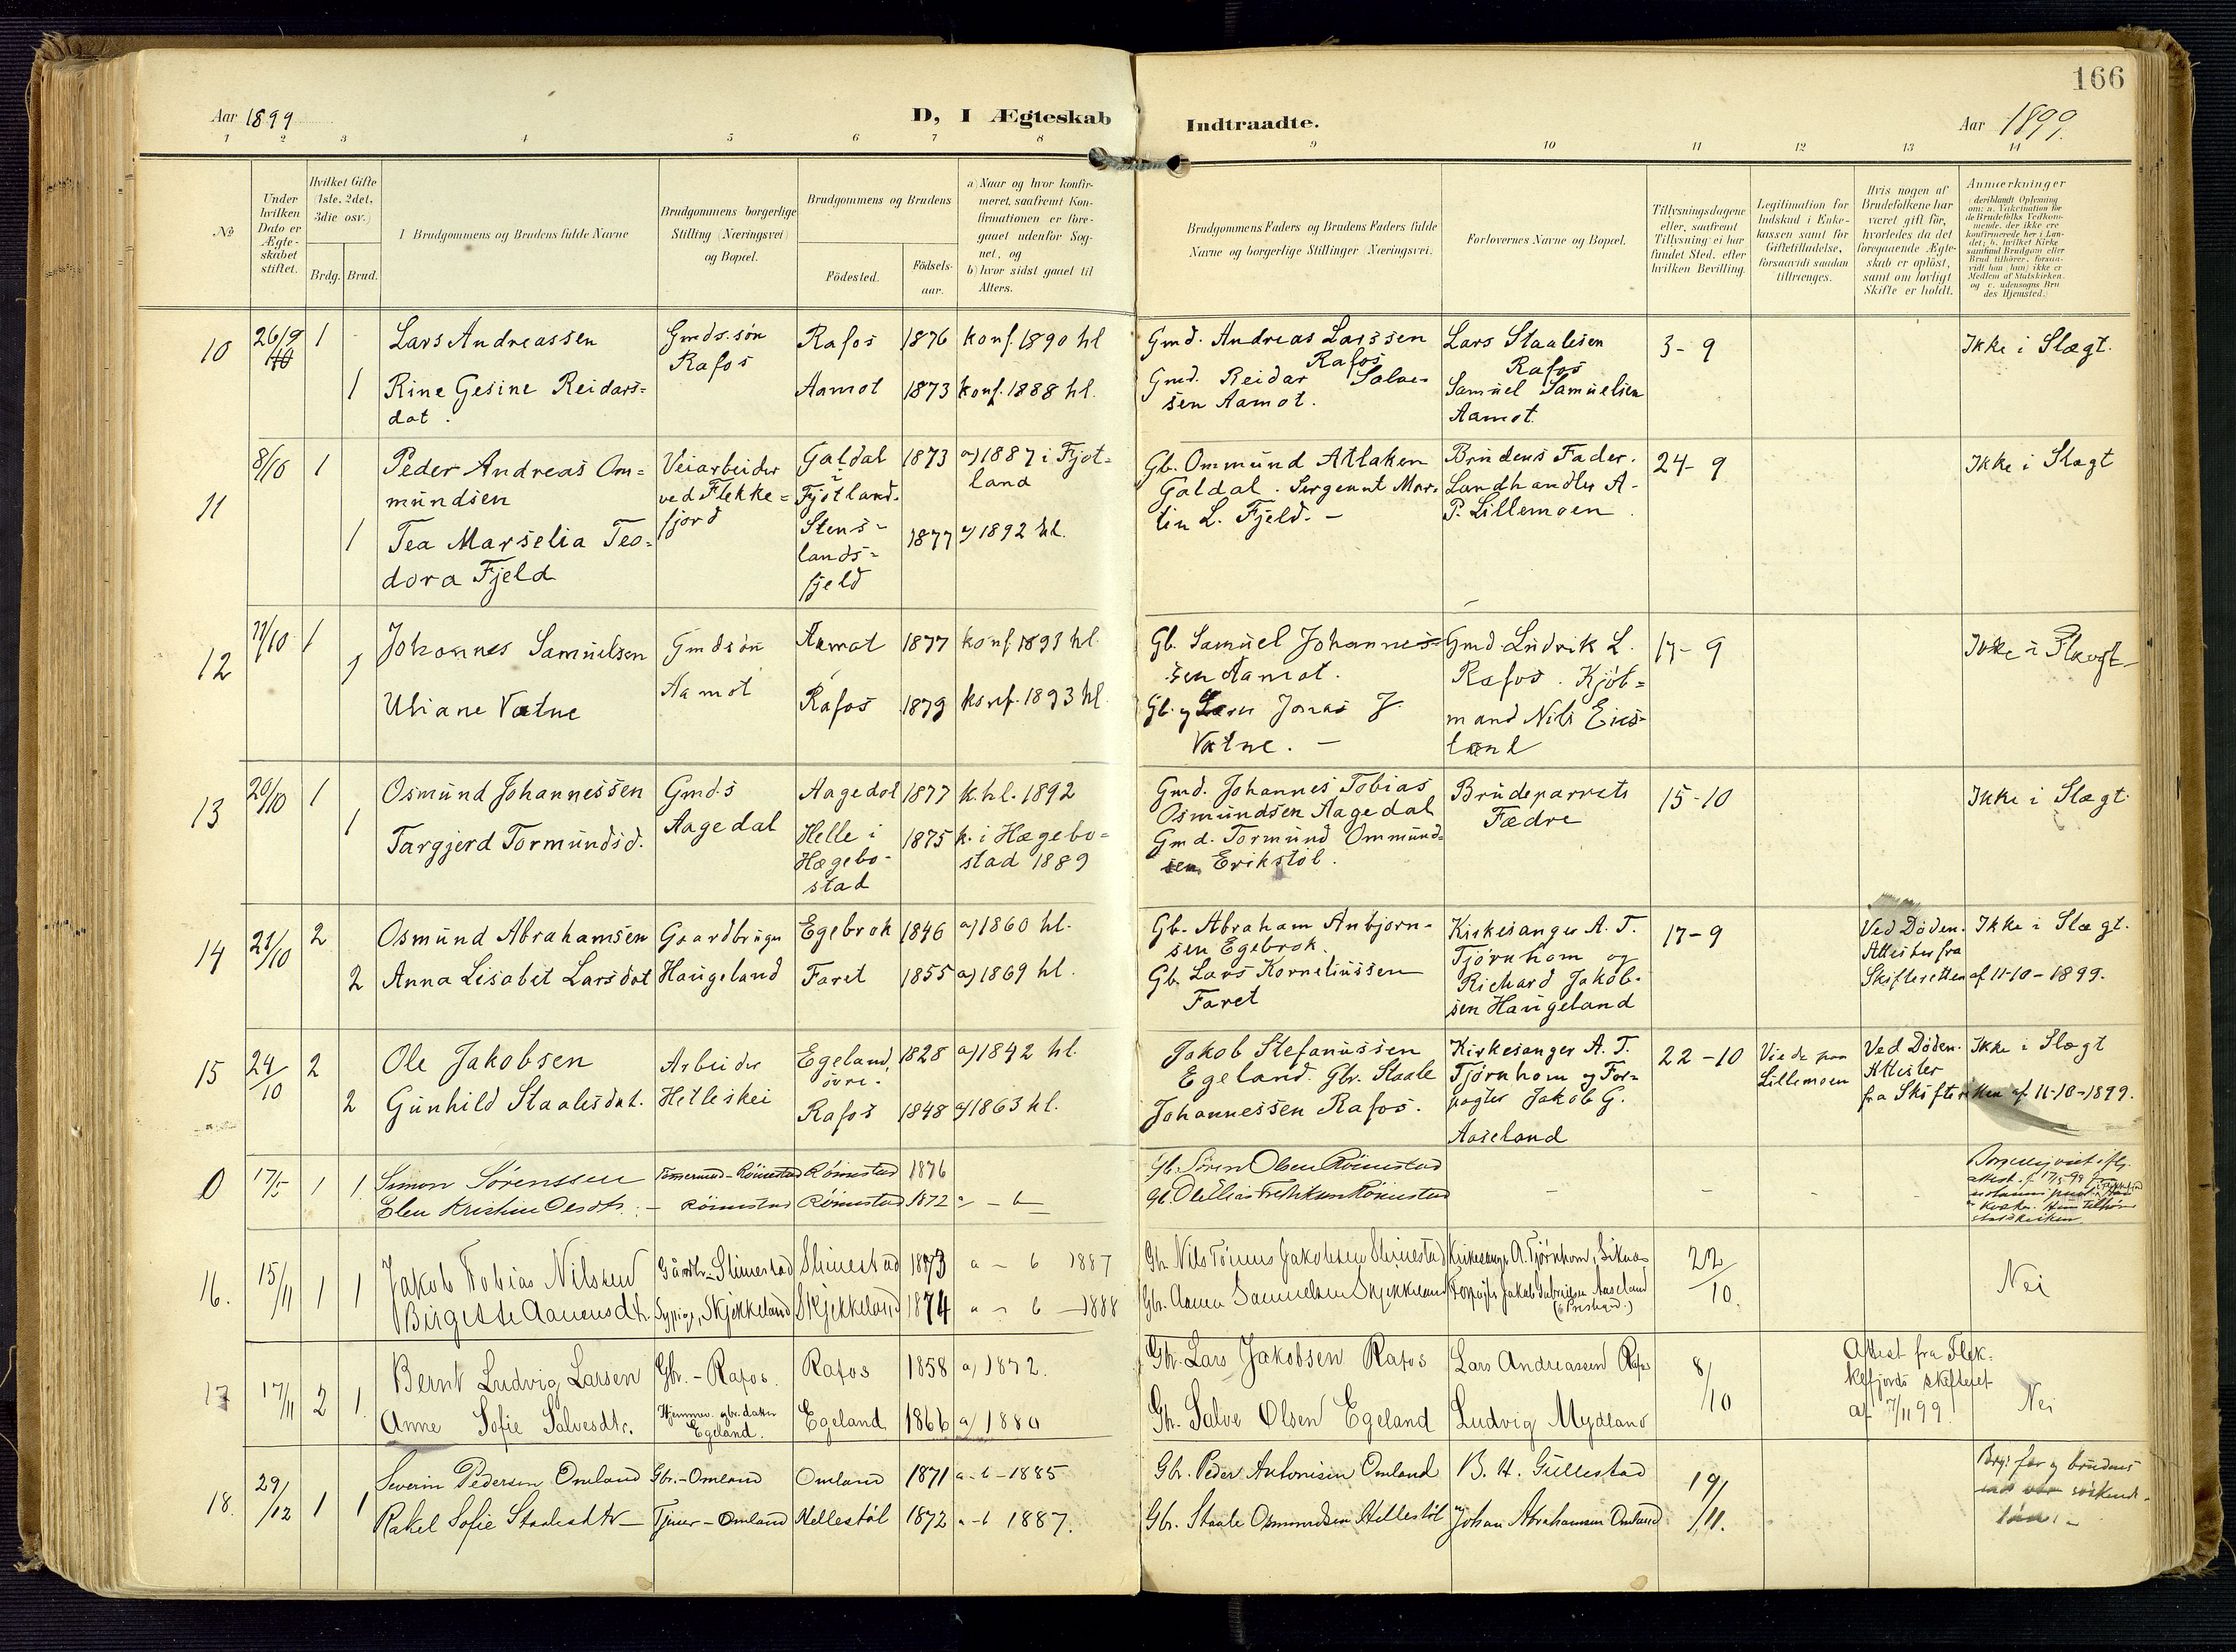 166
Aar 1899
D, I Ægteskab Indtraadte.
Aar 1899.
1 2 3 4 5 6 7 8 9 10 11 12 13 14
No
Under hvilken Dato er Ægteskabet stiftet.
Hvilket Gifte (1ste, 2det, 3die osv.)
Brdg. Brud.
Brudgommens og Brudens fulde Navne
Brudgommens borgerlige Stilling (Næringsvei) og Bopæl.
Brudgommens og Brudens
Fødested.
Fødselsaar.
a) Naar og hvor konfirmeret, saafremt Konfirmationen er foregaaet udenfor Sognet, og
b) hvor sidst gaaet til Alters.
Brudgommens Faders og Brudens Faders fulde Navne og borgerlige Stillinger (Næringsvei).
Forlovernes Navne og Bopæl.
Tillysningsdagene eller, saafremt Tillysning ei har fundet Sted, efter hvilken Bevilling.
Legitimation for Indskud i Enkekassen samt for Giftetilladelse, forsaavidt saadan tiltrænges.
Hvis nogen af Brudefolkene har været gift før, hvorledes da det foregaaende Ægteskab er opløst, samt om lovligt Skifte er holdt.
Anmærkninger
deriblandt Oplysning om: a. Vakcination for de Brudefolks Vedkommende, der ikke ere konfirmerede her i Landet; b. hvilket Kirkesamfund Brudgom eller Brud tilhører, forsaavidt han (hun) ikke er Medlem af Statskirken, og c. udensogns Brudes Hjemsted.)
10 26/9 1 Lars Andreassen Gmds. søn Rafos Rafos 1876 konf. 1890 hl Gmd. Andreas Larssen Rafos Lars Staalesen Rafos 3-9 Ikke i Slægt.
1 Rine Gesine Reidarsdat. Aamot 1873 konf. 1888 hl. Gmd. Reidar Salvesen Aamot. Samuel Samuelsen Aamot.
11 8/10 1 Peder Andreas Ommundsen Veiarbeider ved Flekkefjord Galdal i Fjotland. 1873 a) 1887 i Fjotland Gb. Ommund Atlaksen Galdal. Sergeant Martin L. Fjeld. Brudens Fader. Landhandler A. P. Lillemoen. 24-9 Ikke i Slægt
1 Tea Marselia Teodora Fjeld Stenslandsfjeld 1877 a) 1892 hl.
12 11/10 1 Johannes Samuelsen Gmdsøn Aamot Aamot 1877 konf 1893 hl. Gb. Samuel Johannessen Aamot. Gmd. Ludvik L. Rafos. Kjøbmand Nils Eiesland 17-9 Ikke i Slægt
1 Uliane Vatne Rafos 1879 konf. 1893 hl. Gb. og Jonas J. Vatne.
13 20/10 1 Osmund Johannessen Gmd.s Aagedal Aagedal 1877 k. hl. 1892 Gmd. Johannes Tobias Osmundsen Aagedal Brudeparrets Fædre 15-10 Ikke i Slægt.
1 Targjerd Tormundsd. Helle i Hægebostad 1875 k. i Hægebostad 1889 Gmd. Tormund Ommundsen Erikstøl.
14 21/10 2 Osmund Abrahamsen Gaardbruger Haugeland Egebrok 1846 a) 1860 hl. Gb. Abraham Anbjørnsen Egebrok. Kirkesanger A. T. Tjørnhom og Richard Jakobsen Haugeland 17-9 Ved Døden. Attester fra Skifteretten af 11-10-1899. Ikke i Slægt.
2 Anna Lisabet Larsdat Faret 1855 a) 1869 hl. Gb. Lars Korneliussen Faret
15 24/10 2 Ole Jakobsen Arbeider Helleskei Egeland, øvre. 1828 a) 1842 hl. Jakob Stefanussen Egeland. Gbr. Staale Johannessen Rafos. Kirkesanger A. T. Tjørnhom og Forpagter Jakob G. Aaseland 22-10 Viede paa Lillemoen Ved Døden. Attester fra Skifteretten af 11-10-1899. Ikke i Slægt
2 Gunhild Staalesdat. Rafos 1848 a) 1863 hl.
0 17/5 1 1 Simon Sørenssen Tømmermd - Røinestad Røinestad 1876 Gb. Søren Olsen Røinestad
Elen Kristine Olesdtr. - Røinestad Røinestad 1872 a - b Gb. Ole Elias Fredriksen Røinestad
Borgerlig viet attest af 17/5 99 statskirken
16. 15/11 1 1 Jakob Tobias Nilssen Gaardbr - Stimestad Slimestad 1873 a - b 1887 Gbr. Nils Tønnes Jakobsen Slimestad Kirkesanger A. Tjørnhom, 22/10. Nei
Birgitte Aanensdtr. Sypige, Skjekkeland Skjekkeland 1874 a - b - 1888 Gbr. Aanen Samuelsen Skjekkeland Forpagter Jakob Gabrielsen Aaseland
17 17/11 2 1 Bernt Ludvig Larsen Gbr. - Rafos. Rafos 1858 a) 1872. Gbr. Lars Jakobsen Rafos Lars Andreassen Rafos 8/10 Attest fra Flekkefjords skifteret af 17/11 99. Nei
Anne Sofie Salvesdtr. Hjemmev. gbr. datter Egeland. Egeland 1866 a) 1880 Gb. Salve Olsen Egeland Ludvig Mydland
18. 29/12 1 1 Severin Pedersen Omland Gbr. - Omland Omland 1871 a - b - 1885 Gbr. Peder Antonisen Omland B. H. Gullestad 19/11. Brgs far og brudens søskende
Rakel Sofie Staalesdtr - Tjener - Omland Hellestøl 1872 a - b 1887. Gbr. Staale Osmundsen Hellestøl Johan Abrahamsen Omland